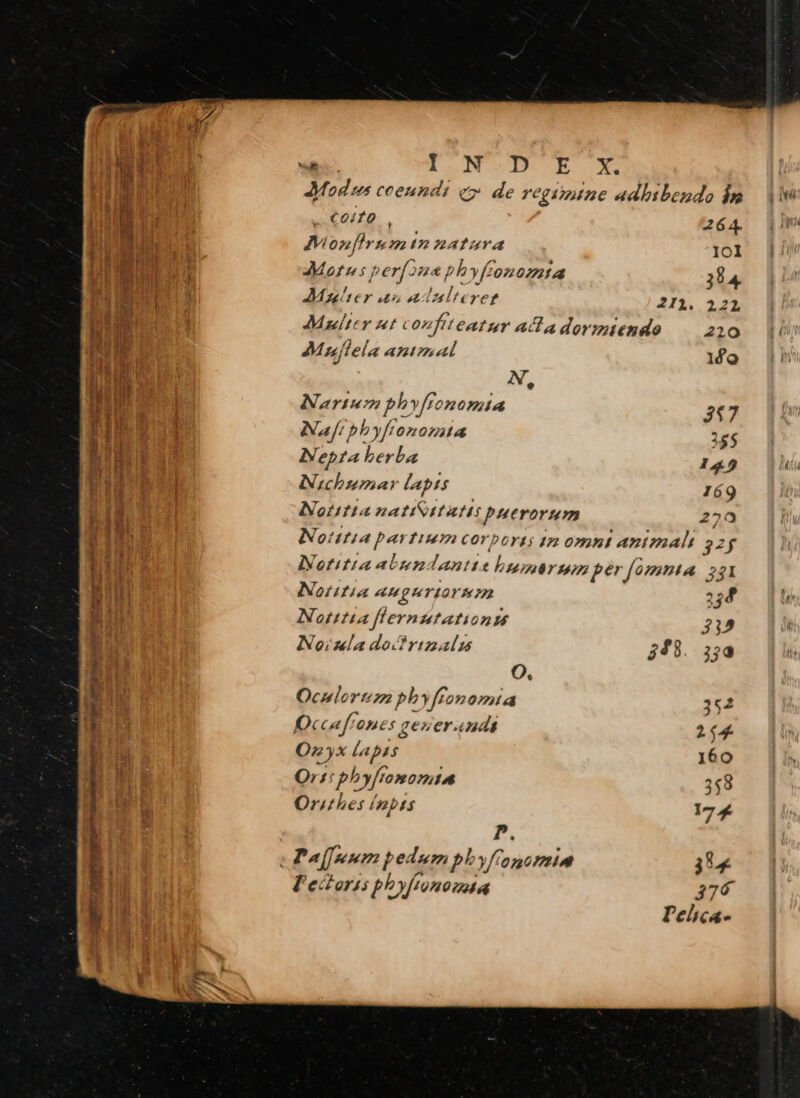 INDEX.
Modus coeundi & de regimine adhibendo in
coito, 264
Monſtrum in natura 101
Motus perſonæ phyſionomia 384
Mulier an adulteret 211. 221
Mulier ut confiteatur acta dormiendo 220
Muſtela animal 180
N.
Narium phyſionomia 357
Naſi phyſionomia 355
Nepta herba 149
Nichumar lapis 169
Notitia nativitatis puerorum 270
Notitia partium corporis in omni animali 325
Notitia abundantiæ humorum per ſomnia 331
Notitia auguriorum 338
Notitia ſternutationis 339
Notula doctrinalis 388. 330
O.
Oculorum phyſionomia 352
Occaſiones generandi 254
Onyx lapis 160
Oris phyſionomia 358
Orithes lapis 174
P.
Paſſuum pedum phyſionomia 384
Pectoris phyſionomia 376
Pelica-